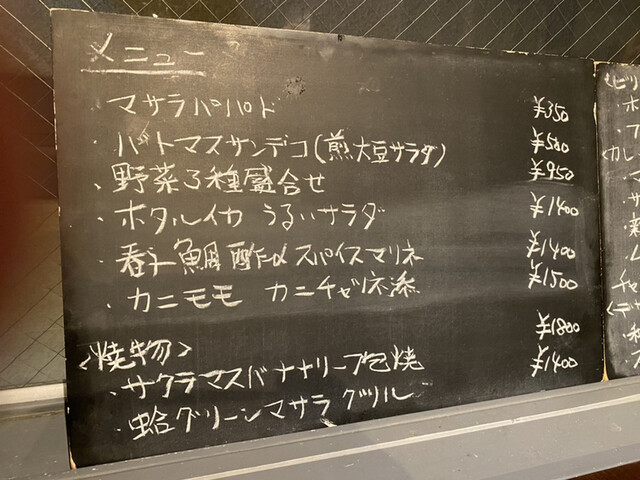 メニュー
・マサラパパド ¥350
・バトマスサンデコ(煎大豆サラダ) ¥580
・野菜3種盛合せ ¥950
・ホタルイカ うるいサラダ ¥1400
・春子鯛酢〆スパイスマリネ ¥1400
・カニモモ カニチャツネ添 ¥1500
<焼物>
・サクラマスバナナリーフ包焼 ¥1800
・蛤グリーンマサラ グリル ¥1400